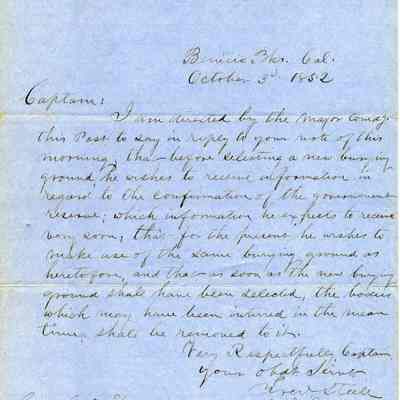 Benicia Bks. Cal.
October 3d 1852
Captain:
I am directed by the Major Comdg.
this Post to say in reply to your note of this
morning, that before selecting a new burying
ground, he wishes to receive information in
regard to the confirmation of the government
reserve; which information he expects to receive
very soon; that for the present he wishes to
make use of the same burying ground as
heretofore, and that as soon as the new burying
ground shall have been selected, the bodies
which may have been interred in the mean
time, shall be removed to it.
Very Respectfully Captain
your obdt Servt
Steele